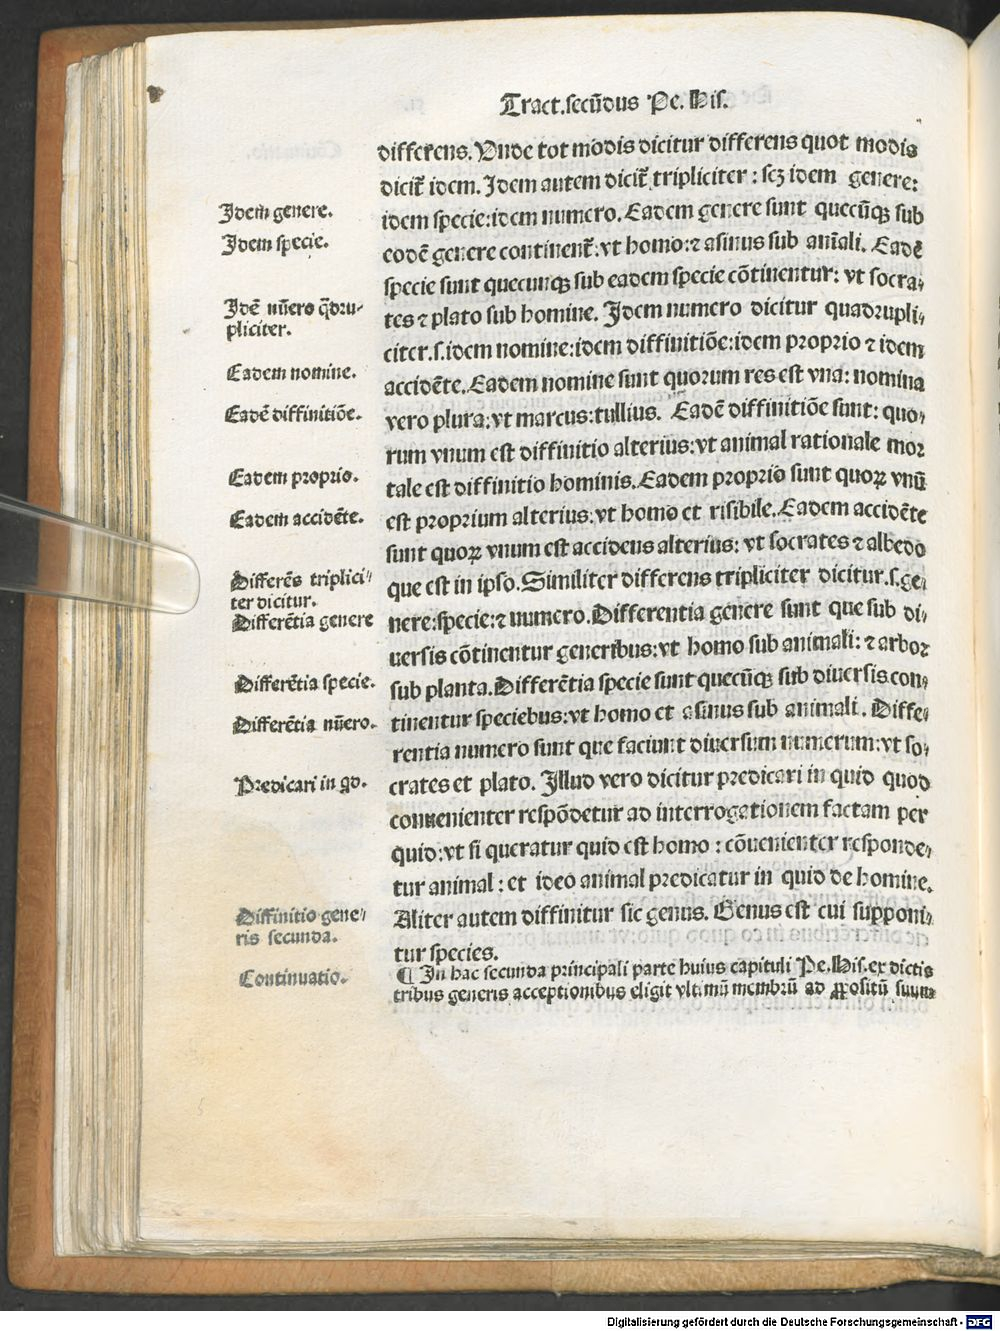 Tract.secūdus Pe. His.
differens. Vnde tot modis dicitur differens quot modis
dicit᷑ idem. Idem autem dicit᷑ tripliciter : scꝫ idem genere:
idem specie:idem numero. Eadem genere sunt quecūqꝫ sub
eodē genere continent᷑:vt homo:⁊ asinus sub aīali. Eadē
specie sunt quecunqꝫ sub eadem specie cōtinentur: vt socra⸗
tes ⁊ plato sub homine. Idem numero dicitur quadrupli⸗
citer.s.idem nomine:idem diffinitiōe:idem proprio ⁊ idem
accidēte. Eadem nomine sunt quorum res est vna: nomina
vero plura:vt marcus:tullius. Eadē diffinitiōe sunt: quo⸗
rum vnum est diffinitio alterius:vt animal rationale mor
tale est diffinitio hominis. Eadem proprio sunt quoꝝ vnū
est proprium alterius:vt homo et risibile. Eadem accidēte
sunt quoꝝ vnum est accidens alterius: vt socrates ⁊ albedo
que est in ipso. Similiter differens tripliciter dicitur.s.ge⸗
nere:specie:⁊ numero. Differentia genere sunt que sub di⸗
uersis cōtinentur generibus:vt homo sub animali: ⁊ arbor
sub planta. Differētia specie sunt quecūqꝫ sub diuersis con⸗
tinentur speciebus:vt homo et asinus sub animali. Diffe⸗
rentia numero sunt que faciunt diuersum numerum:vt so⸗
crates et plato. Illud vero dicitur predicari in quid quod
conuenienter respōdetur ad interrogationem factam per
quid:vt si queratur quid est homo : cōuenienter responde⸗
tur animal : et ideo animal predicatur in quid de homine.
Aliter autem diffinitur sic genus. Genus est cui supponi⸗
tur species.
¶ In hac secunda principali parte huius capituli Pe. His. ex dictis
tribus generis acceptionibus eligit vltimū membrū ad ꝓpositū suum
Idem genere.
Idem specie.
Idē nūero q̄dru⸗
pliciter.
Eadem nomine.
Eadē diffinitiōe.
Eadem proprio.
Eadem accidēte.
Differēs triplici⸗
ter dicitur.
Differētia genere
Differētia specie.
Differētia nūero.
Predicari in qd.
Diffinitio gene⸗
ris secunda.
Continuatio.
Digitalisierung gefördert durch die Deutsche Forschungsgemeinschaft - DFG